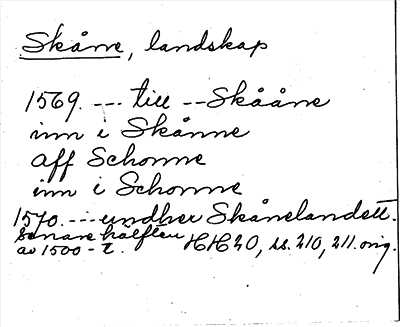 Skåne, landskap
1569. --- till -- Skååne
inn i Skånne
aff Schonne
inn i Schonne
1570. --- undher Skånelandett.
Senare hälften HH 20, ss. 210, 211. orig.
av 1500-t.